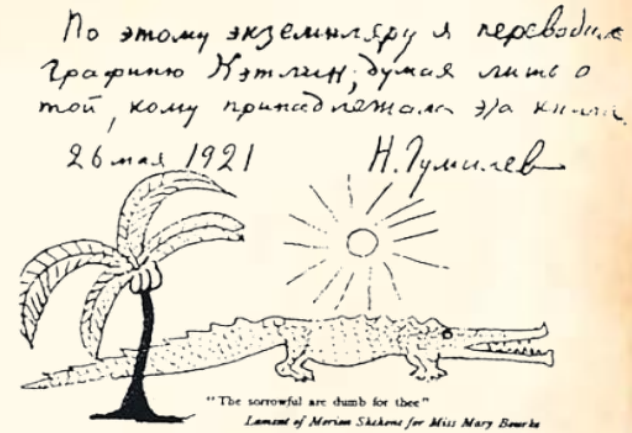 По этому экземпляру я переводил
Графиню Кэтлин, думая лишь о
той, кому принадлежала эта книга.
26 мая 1921 Н. Гумилев
"The sorrowful are dumb for thee"
Lament of Morion Shehone for Miss Mary Bourke